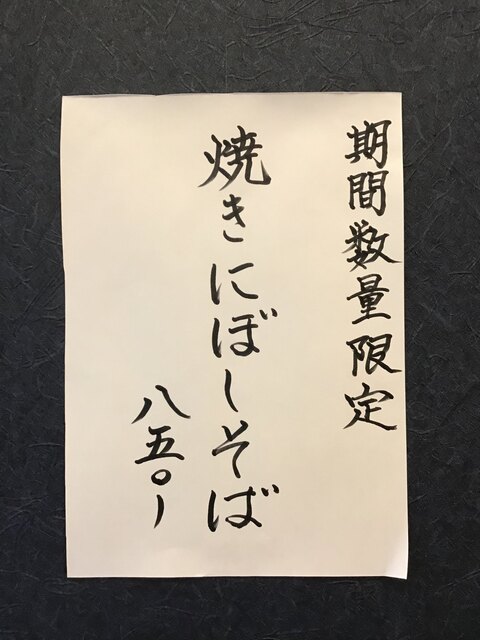 期間数量限定
焼きにぼしそば
八五〇ー